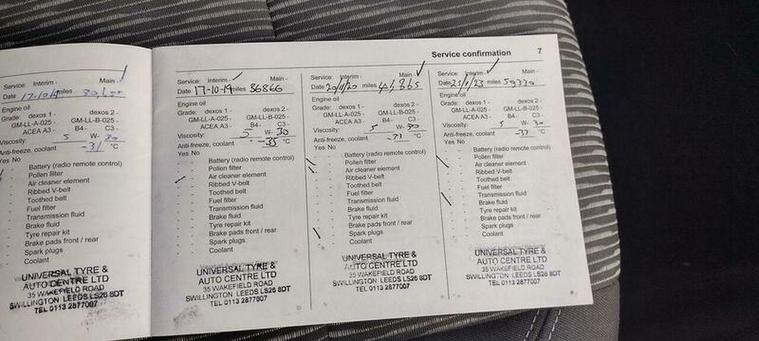 Service confirmation 7
Service: Interim - Main -
Date miles
Engine oil
Grade: dexos 1 - dexos 2 -
GM-LL-A-025 - GM-LL-B-025 -
ACEA A3 - B4- C3 -
Viscosity: 5 W- 30
Anti-freeze, coolant -31 °C
Yes No
Battery (radio remote control)
Pollen filter
Air cleaner element
Ribbed V-belt
Toothed belt
Fuel filter
Transmission fluid
Brake fluid
Tyre repair kit
Brake pads front / rear
Spark plugs
Coolant
UNIVERSAL TYRE &
AUTO CENTRE LTD
35 WAKEFIELD ROAD
SWILLINGTON LEEDS LS26 8DT
TEL 0113 2877007
Service: Interim - Main -
Date 17-10-19 miles 36866
Engine oil
Grade: dexos 1 - dexos 2 -
GM-LL-A-025 - GM-LL-B-025 -
ACEA A3 - B4- C3 -
Viscosity: 5 W- 30
Anti-freeze, coolant -35 °C
Yes No
Battery (radio remote control)
Pollen filter
Air cleaner element
Ribbed V-belt
Toothed belt
Fuel filter
Transmission fluid
Brake fluid
Tyre repair kit
Brake pads front / rear
Spark plugs
Coolant
UNIVERSAL TYRE &
AUTO CENTRE LTD
35 WAKEFIELD ROAD
SWILLINGTON LEEDS LS26 8DT
TEL 0113 2877007
Service: Interim - Main -
Date miles
Engine oil
Grade: dexos 1 - dexos 2 -
GM-LL-A-025 - GM-LL-B-025 -
ACEA A3 - B4- C3 -
Viscosity: 5 W- 30
Anti-freeze, coolant °C
Yes No
Battery (radio remote control)
Pollen filter
Air cleaner element
Ribbed V-belt
Toothed belt
Fuel filter
Transmission fluid
Brake fluid
Tyre repair kit
Brake pads front / rear
Spark plugs
Coolant
UNIVERSAL TYRE &
AUTO CENTRE LTD
35 WAKEFIELD ROAD
SWILLINGTON LEEDS LS26 8DT
TEL 0113 2877007
Service: Interim - Main -
Date miles
Engine oil
Grade: dexos 1 - dexos 2 -
GM-LL-A-025 - GM-LL-B-025 -
ACEA A3 - B4- C3 -
Viscosity: 5 W- 30
Anti-freeze, coolant °C
Yes No
Battery (radio remote control)
Pollen filter
Air cleaner element
Ribbed V-belt
Toothed belt
Fuel filter
Transmission fluid
Brake fluid
Tyre repair kit
Brake pads front / rear
Spark plugs
Coolant
UNIVERSAL TYRE &
AUTO CENTRE LTD
35 WAKEFIELD ROAD
SWILLINGTON LEEDS LS26 8DT
TEL 0113 2877007